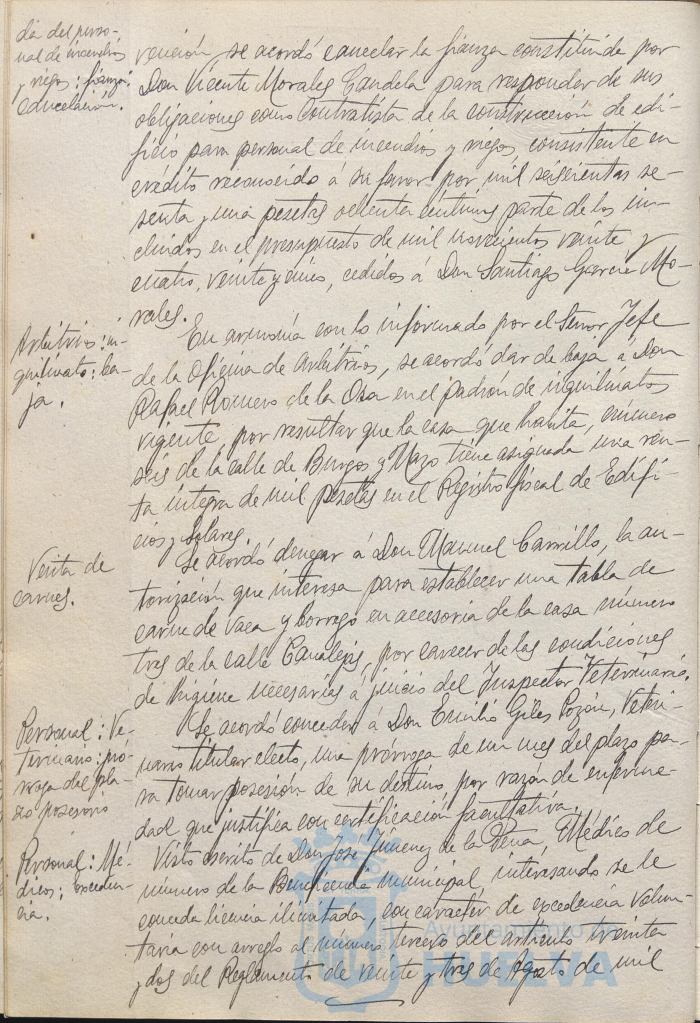 da del perso-
nal de incendios
y riegos: fianza:
cancelación.
vención, se acordó cancelar la fianza constituida por
Don Vicente Morales Candela para responder de sus
obligaciones como Contratista de la construcción de edi-
ficio para personal de incendios y riegos consistente en
crédito reconocido á su favor por mil seiscientas se-
senta y una pesetas ochenta céntimos parte de los in-
cluidos en el presupuesto de mil novecientos veinte y
cuatro, veinte y cinco, cedidos á Don Santiago García Mo-
rales.
Arbitrio: in-
quilinato: ba-
ja.
En armonía con lo informado por el Señor Jefe
de la Oficina de Arbitrios, se acordó dar de baja á Don
Rafael Romero de la Osa en el padron de inquilinatos
vigente, por resultar que la casa que habita, número
seis de la calle de Burgos y Mazo tiene asignada una ren-
ta integra de mil pesetas en el Registro fiscal de Edifi-
cios y Solares.
Venta de
carnes.
Se acordó denegar á Don Manuel Carrillo, la au-
torización que interesa para establecer una tabla de
carne de vaca y borrego en accesoria de la casa número
tres de la calle Canalejas, por carecer de las condiciones
de higiene necesarias á juicio del Inspector Veterinario.
Personal: Ve-
terinario: pró-
rroga del pla-
zo posesorio
Se acordó conceder á Don Emilio Giles Pozón, Veteri-
nario titular electo, una prórroga de un mes del plazo pa-
ra tomar posesión de su destino, por razón de enferme-
dad que justifica con certificación facultativa.
Personal: Mé-
dicos; exceden-
cia.
Visto escrito de Don José Jimenez de la Peña, Médico de
número de la Beneficencia municipal, interesando se le
conceda licencia ilimitada, con carácter de excedencia volun-
taria con arreglo al número tercero del artículo treinta
y dos del Reglamento de veinte y tres de Agosto de mil
Ayuntamiento de
HUELVA